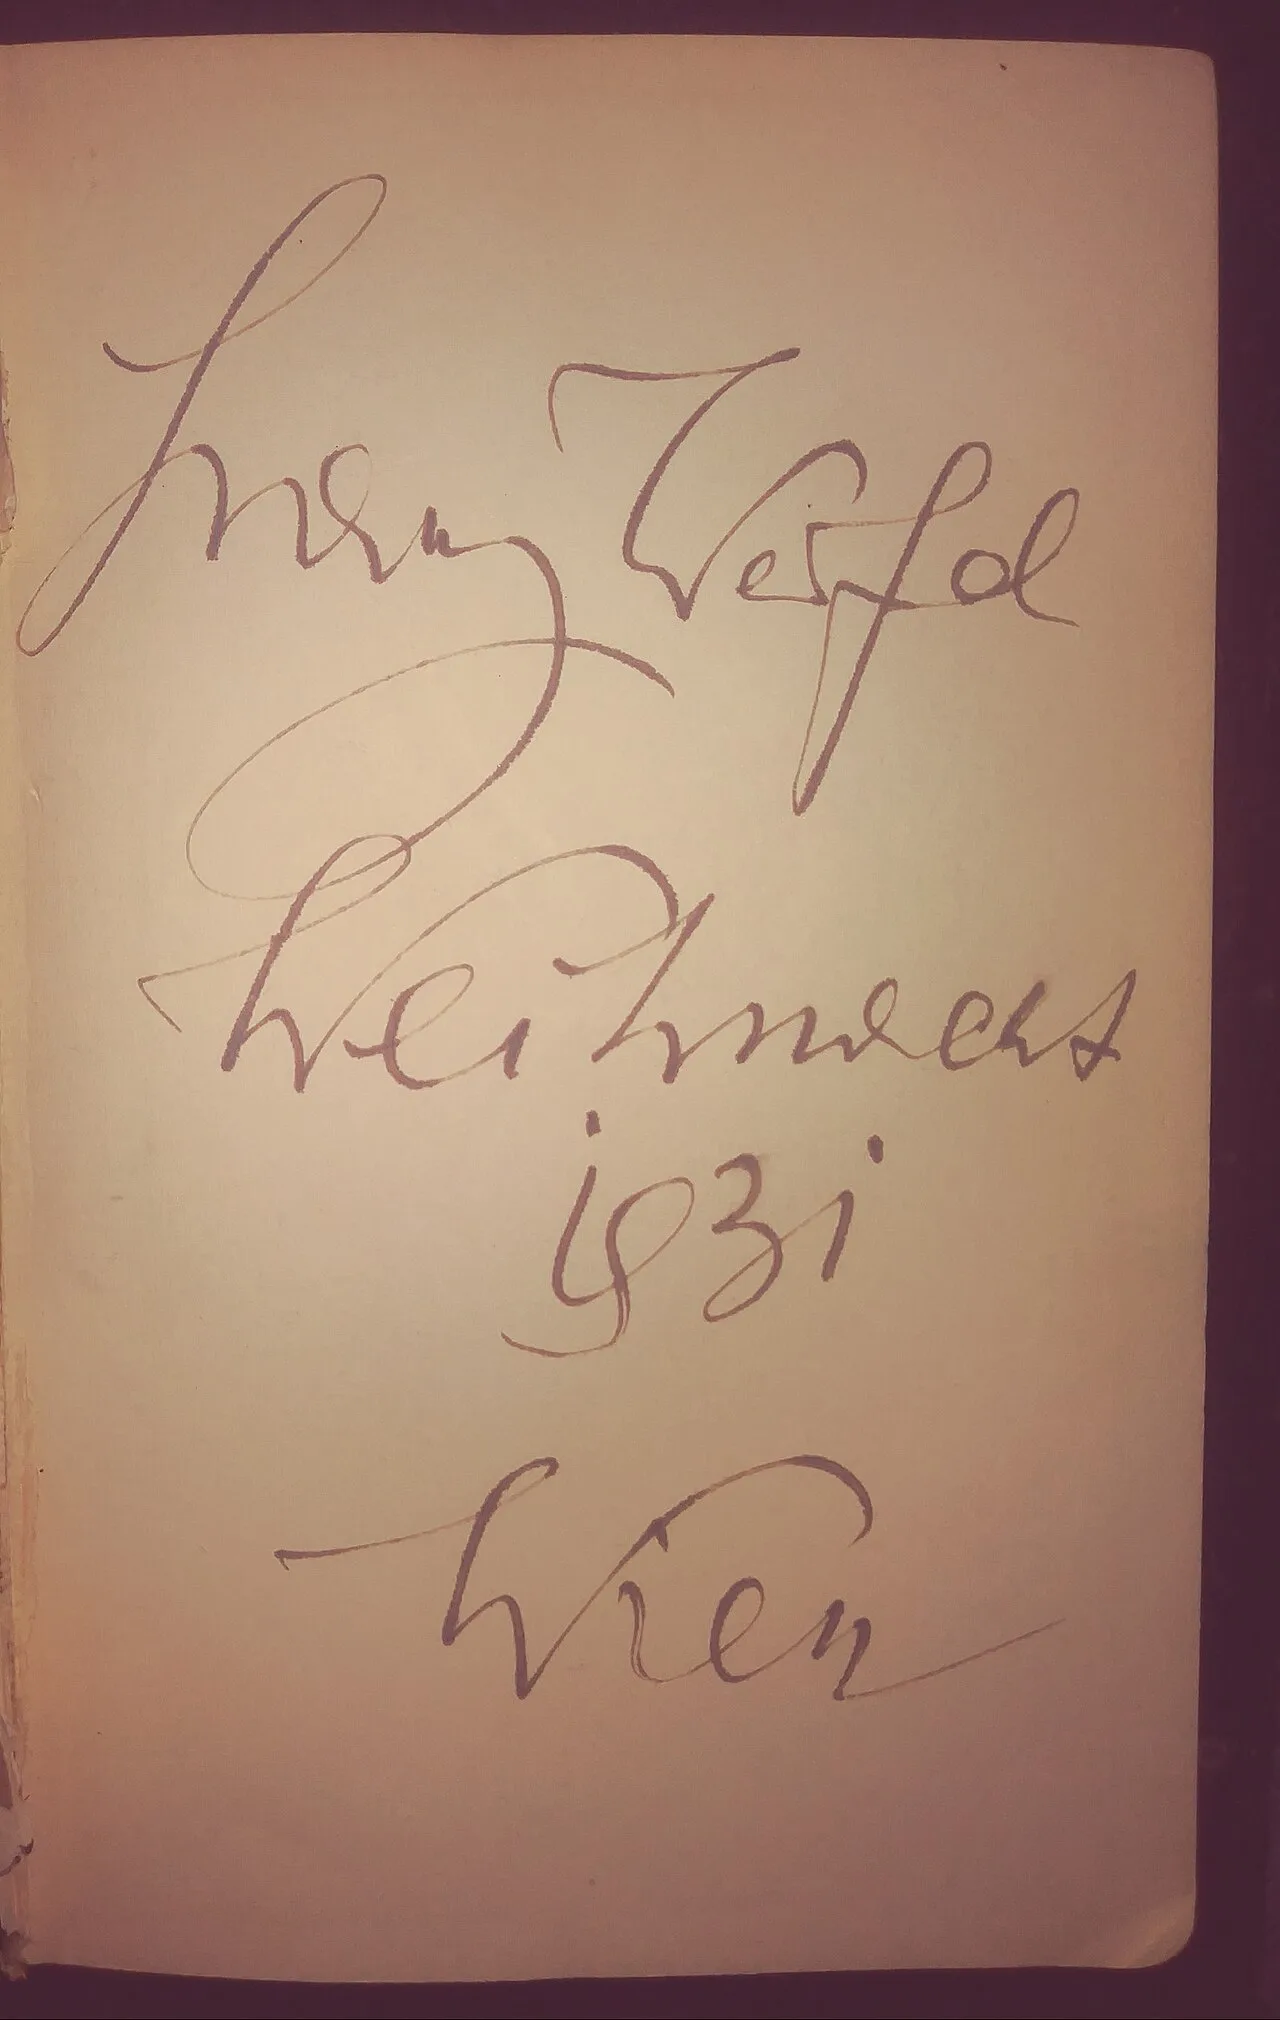 Franz Werfel
Weihnacht
1931
Wien